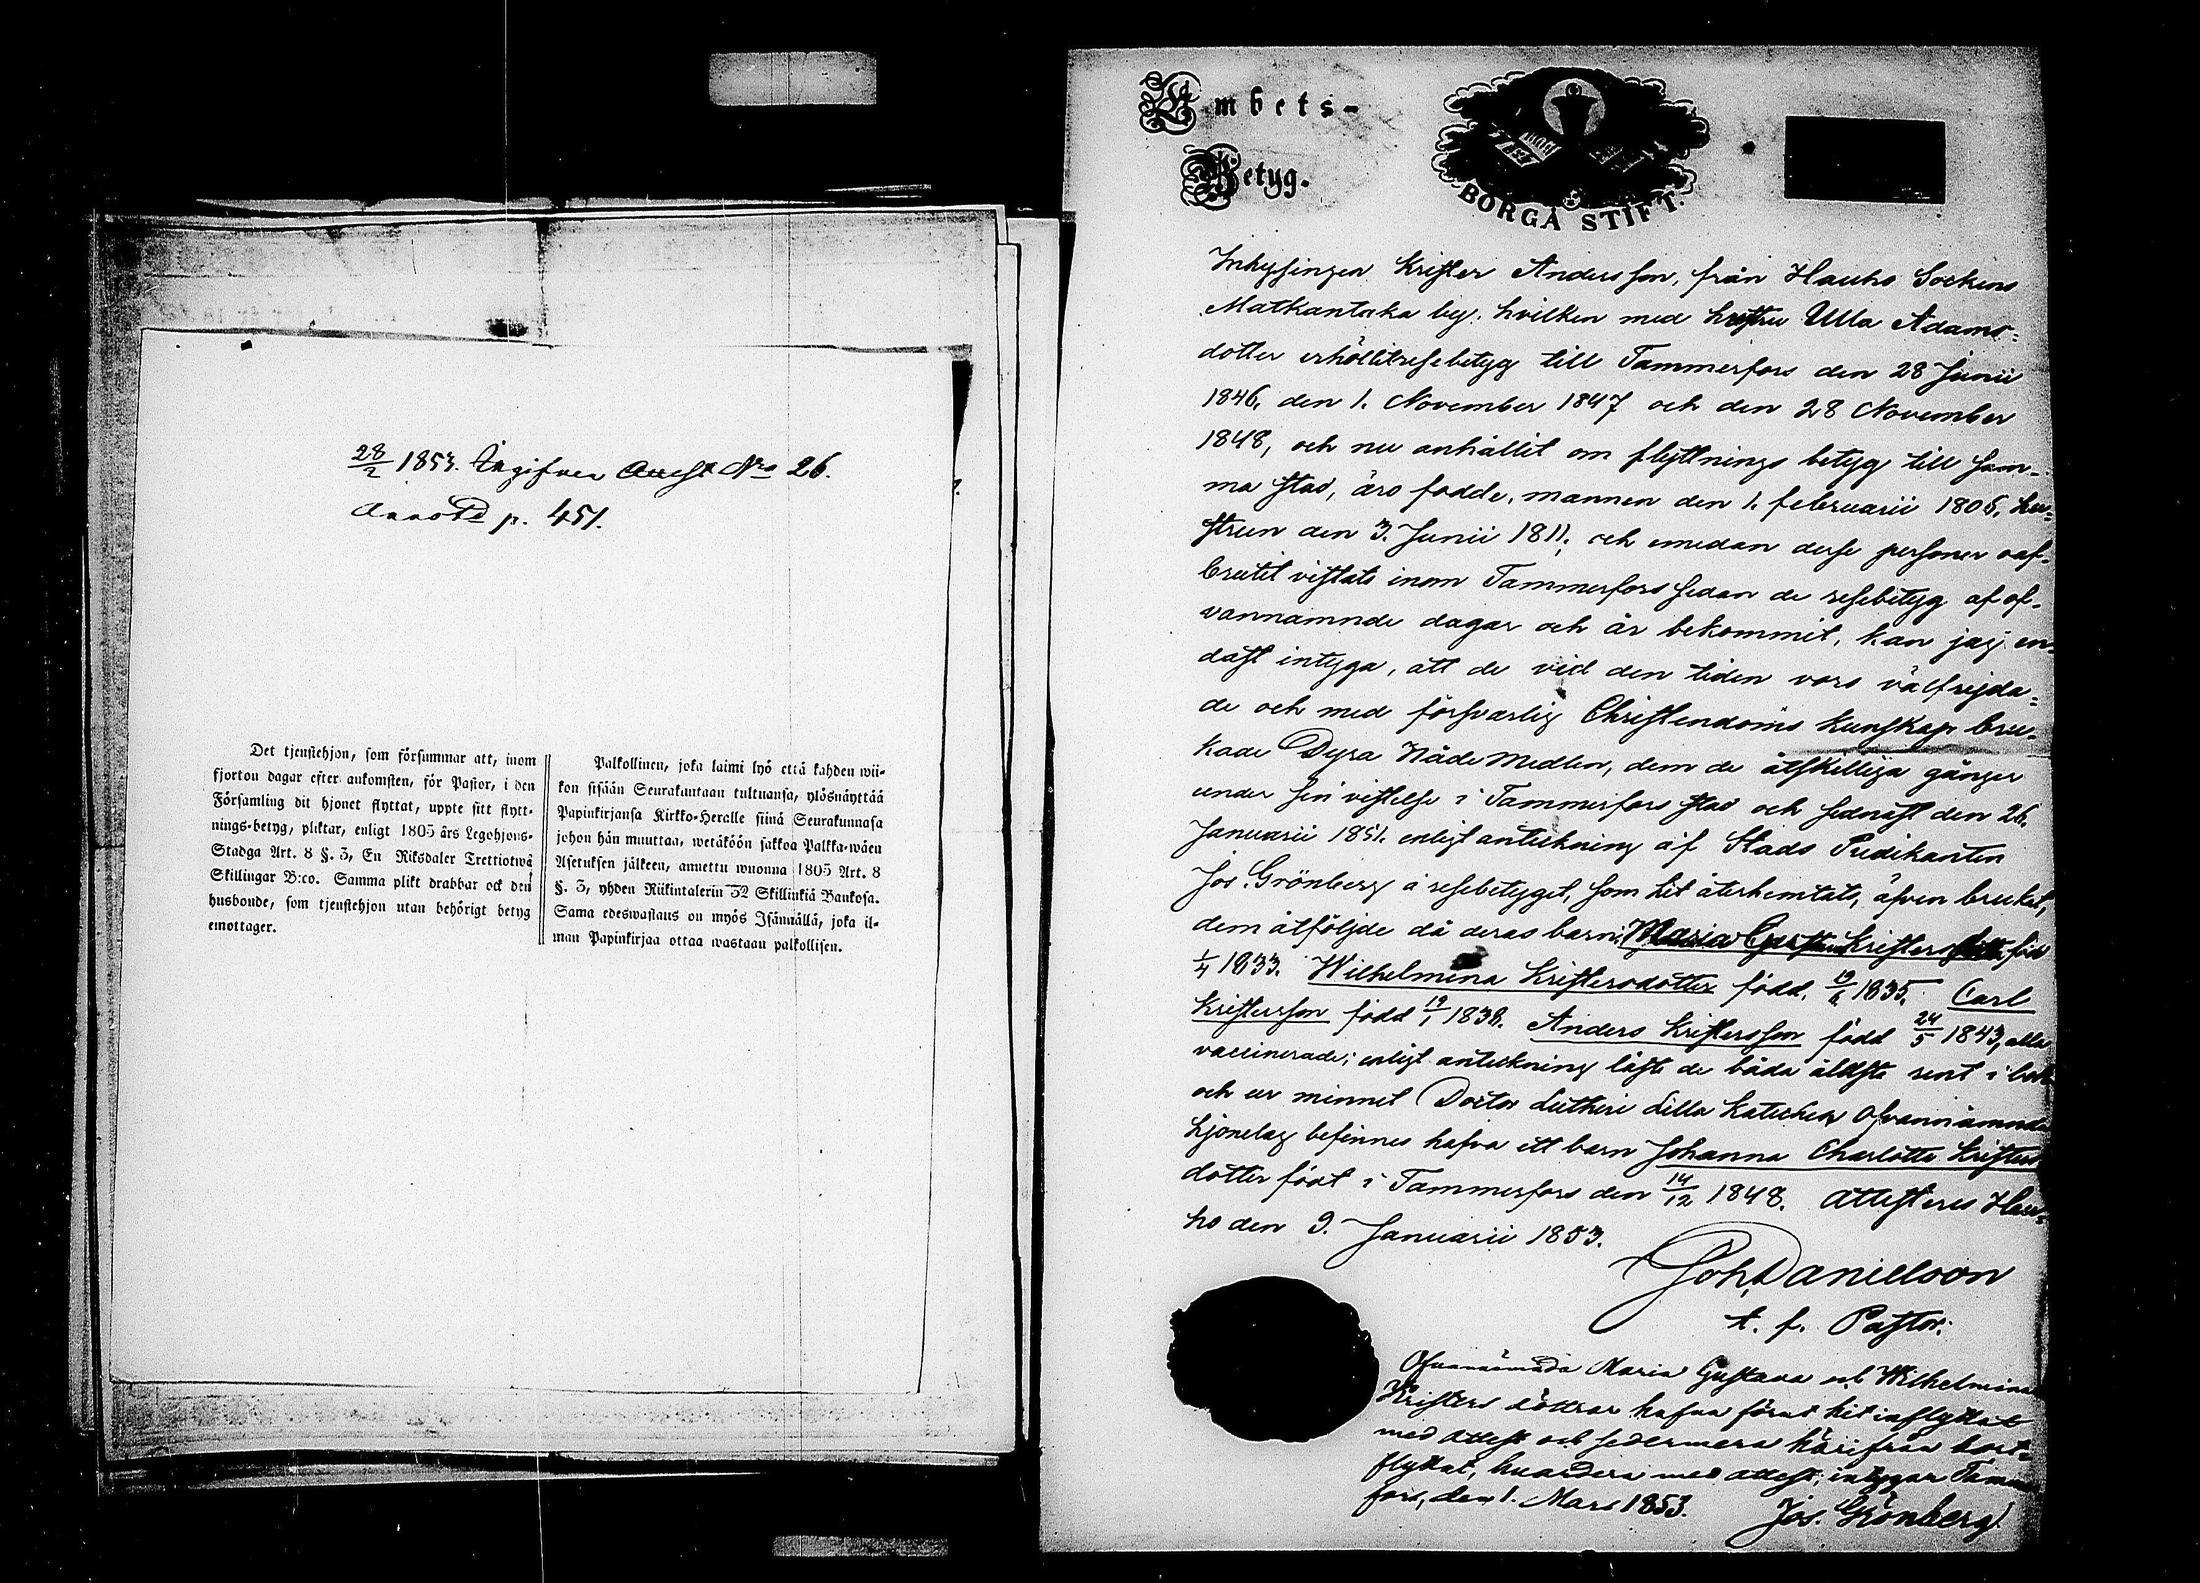 28/2 1853. Ingifven Attest No 26.
Annoterd p. 451.
Det tjenstehjon, som försummar att, inom
fjorton dagar efter ankomsten, för Pastor, i den
Församling dit hjonet flyttat, uppte sitt flytt-
nings-betyg, pliktar, enligt 1805 års Legohjons-
Stadga Art. 8 §. 3, En Riksdaler Trettiotwå
Skillingar B:co. Samma plikt drabbar ock den
husbonde, som tjenstehjon utan behörigt betyg
emottager.
Palkollinen, joka laimi lyö että kahden wii-
kon sisään Seurakuntaan tultuansa, ylösnäyttää
Papinkirjansa Kirkko-Heralle siinä Seurakunnasa
johon hän muuttaa, wetäköön sakkoa Palkka-wäen
Asetuksen jälkeen, annettu wuonna 1805 Art. 8
§. 3, yhden Riikintalerin 32 Skillinkiä Bankosa.
Sama edeswastaus on myös Isännällä, joka il-
man Papinkirjaa ottaa wastaan palkollisen.
Ambets-
Betyg.
BORGÅ STIFT.
Inhysingen Krister Andersson, från Hauho Sockens
Matkantaka by, hvilken med hustru Ulla Adams-
dotter erhållit resebetyg till Tammerfors den 28 Junii
1846, den 1. November 1847 och den 28 November
1848, och nu anhållit om flyttnings betyg till sam-
ma stad, äro födde, mannen den 1. februarii 1806. hu-
strun den 3. Junii 1811; och emedan desse personer oaf-
brutit vistats inom Tammerfors sedan de resebetyg af of-
vannämnde dagar och år bekommit, kan jag en-
dast intyga, att de vid den tiden voro välfrejda-
de och med försvarlig Christendoms kunskap bru-
kade Dyra Nåde Medlen, dem de åtskilliga gånger
under sin vistelse i Tammerfors stad och sednast den 26.
Januarii 1851. enligt anteckning af Stads Predikanten
Jos. Grönberg å resebetyget, som hit återhemtats, äfven brukat,
dem åtföljde då deras barn: Maria Gustava Kristersdotter föd
1/4 1833. Wilhelmina Kristersdotter född. 19/6 1835. Carl
Kristersson född 19/1 1838. Anders Kristersson född 24/5 1843, alla
vaccinerade; enligt anteckning läste de båda äldste rent i bok
och ur minnet Doctor Lutheri Lilla Kateches Ofvannämnde
hjonelag befinnes hafva ett barn Johanna Charlotta Kristers
dotter födt i Tammerfors den 14/12 1848. Attesteres Hau-
ho den 9. Januarii 1853.
Joh. Danielsson
t. f. Pastor.
Ofvannämnda Maria Gustava och Wilhelmina
Kristers döttrar hafva förut hit inflyttat
med attest och sedermera härifrån bort-
flyttat, hvardera med attest, intygar Tammer
fors, den 1. Mars 1853.
Jos. Grönberg.